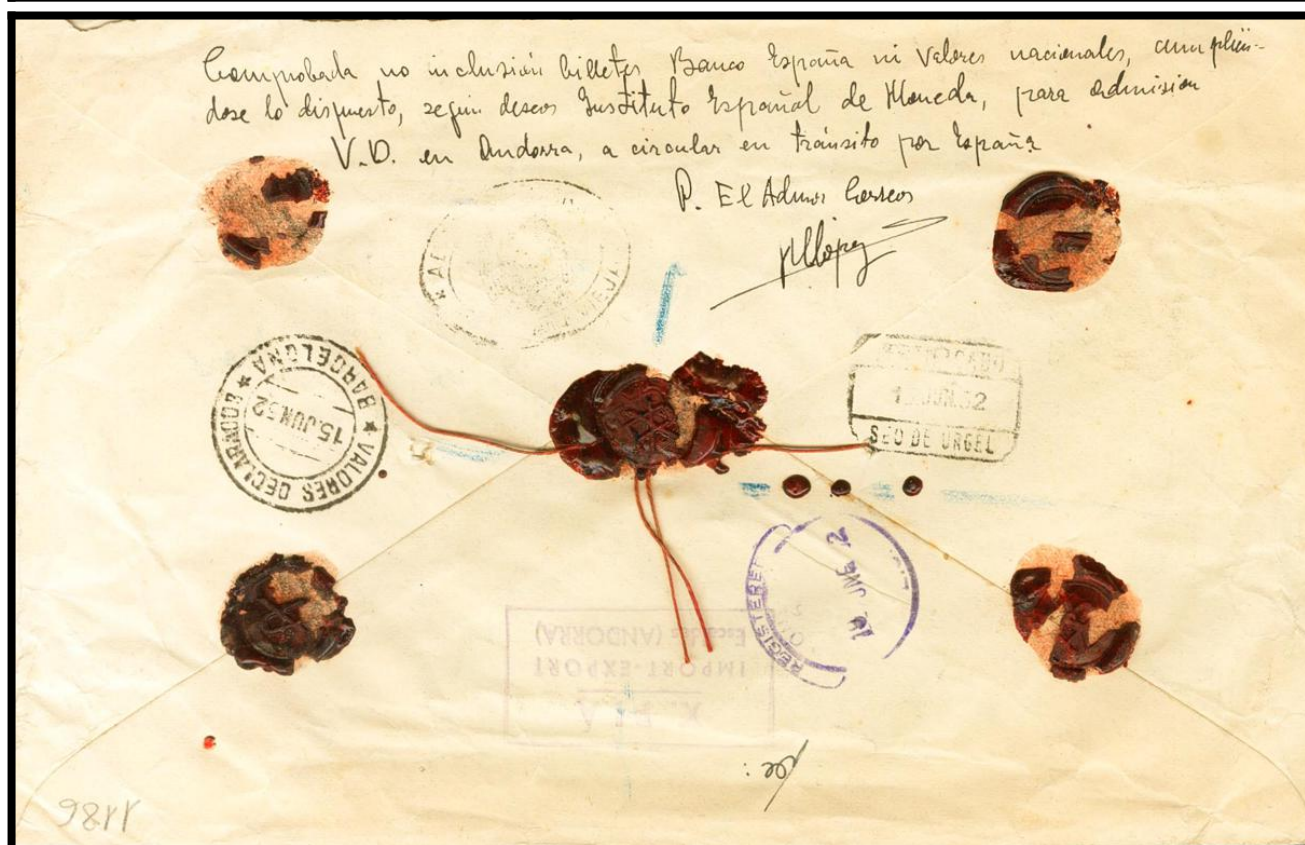 Comprobada no inclusión billetes Banco España ni Valores nacionales, cumplién-
dose lo dispuesto, según deseos Instituto Español de Moneda, para admisión
V.D. en Andorra, a circular en tránsito por España
P. El Admor Correos
MLópez
★ VALORES DECLARADOS ★ BARCELONA
15.JUN.52
JUN.52
SEO DE URGEL
REGISTERED
X. PLA
IMPORT-EXPORT
(ANDORRA)